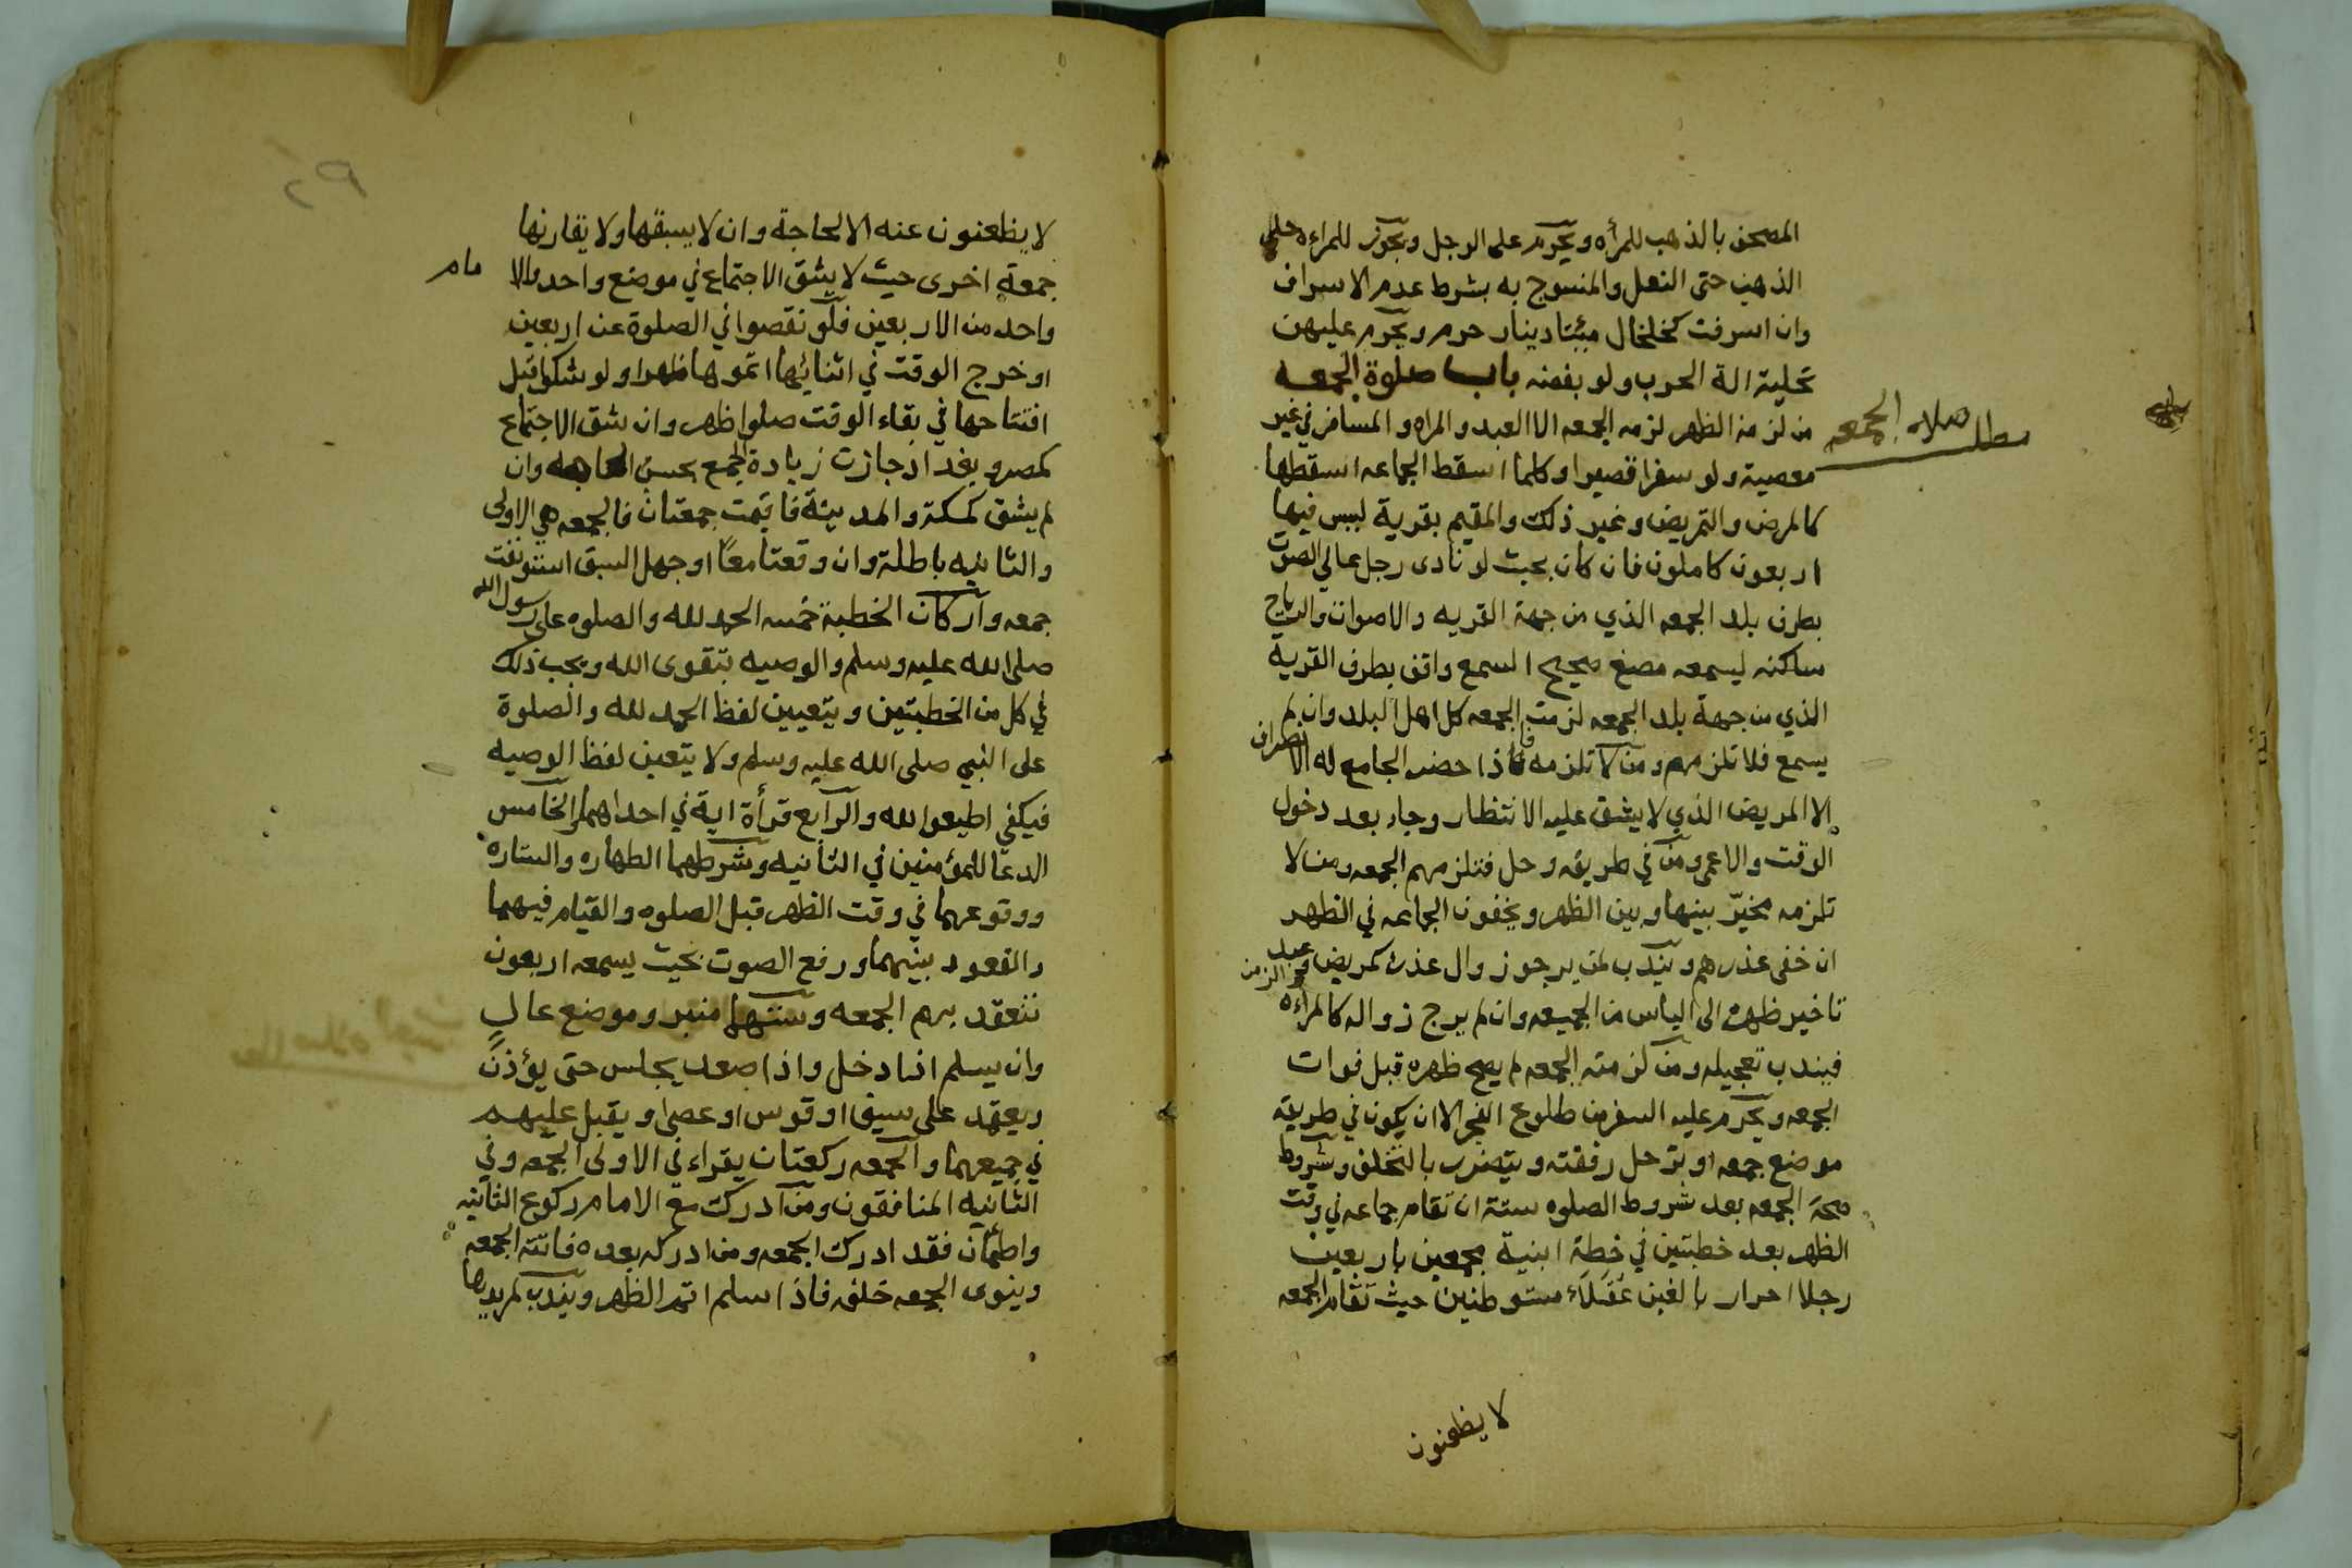 المصحف بالذهب للمرأه ويحرم على الرجل ويجوز للمراءه حلي
الذهب حتى النعل والمنسوج به بشرط عدم الاسراف
وان اسرفت كخلخال مئتا دينار حرم ويحرم عليهن
تحلية الة الحرب ولو بفضه باب صلوة الجمعه
مطلب صلاة الجمعه
من لزمه الظهر لزمه الجمعه الا العبد والمراه والمسافر في غير
معصية ولو سفرا قصيرا وكلما اسقط الجماعه اسقطها
كالمرض والتمريض وغير ذلك والمقيم بقرية ليس فيها
اربعون كاملون فان كان بحيث لو نادى رجل عالي الصوت
بطرف بلد الجمعه الذي من جهة القريه والاصوات والرياح
ساكنه ليسمعه مصغ صحيح السمع واقف بطرف القرية
الذي من جهة بلد الجمعه لزمت الجمعه كل اهل البلد وان لم
يسمع فلا تلزمهم ومن لا تلزمه فاذا حضر الجامع له الانصراف
الا المريض الذي لا يشق عليه الانتظار وجاء بعد دخول
الوقت والاعمى ومن في طريقه وحل فتلزمهم الجمعه ومن لا
تلزمه مخيّر بينها وبين الظهر ويخفون الجماعه في الظهر
ان خفى عذرهم ويندب لمن يرجو زوال عذره كمريض وعبد
تاخير ظهره الى الياس من الجمعه وان لم يرج زواله كالمراءه والزمن
فيندب تعجيله ومن لزمته الجمعه لم يصح ظهره قبل فوات
الجمعه ويحرم عليه السفر من طلوع الفجر الا ان يكون في طريقه
موضع جمعه او ترحل رفقته ويتضرر بالتخلف وشروط
صحة الجمعه بعد شروط الصلوه ستة ان تقام جماعه في وقت
الظهر بعد خطبتين في خطة ابنية مجمعين باربعين
رجلا احرار بالغين عقلاء مستوطنين حيث تقام الجمعه
لا يظعنون
٢٩
لا يظعنون عنه الا لحاجة وان لا يسبقها ولا يقارنها
جمعة اخرى حيث لا يشق الاجتماع في موضع واحد والامام
واحد من الاربعين فلو نقصوا في الصلوة عن اربعين
او خرج الوقت في اثنائها اتموها ظهرا ولو شكوا قبل
افتتاحها في بقاء الوقت صلوا ظهر وان شق الاجتماع
كمصر وبغداد جازت زيادة الجمع بحسب الحاجه وان
لم يشق كمكة والمدينة فاقيمت جمعتان فالجمعه هي الاولى
والثانيه باطلة وان وقعتا معاً او جهل السبق استؤنفت
جمعه واركان الخطبة خمسه الحمد لله والصلوه على رسول الله
صلى الله عليه وسلم والوصيه بتقوى الله ويجب ذلك
في كل من الخطبتين ويتعيين لفظ الحمد لله والصلوة
على النبي صلى الله عليه وسلم ولا يتعين لفظ الوصيه
فيكفي اطيعوا الله والرابع قرأة اية في احداهما والخامس
الدعا للمؤمنين في الثانيه وشرطهما الطهاره والستاره
ووقوعهما في وقت الظهر قبل الصلوه والقيام فيهما
والقعود بينهما ورفع الصوت بحيث يسمعه اربعون
تنعقد بهم الجمعه وسننهما منبر وموضع عال
وان يسلم اذا دخل واذا صعد يجلس حتى يؤذن
ويعتمد على سيف او قوس او عصى ويقبل عليهم
في جميعهما والجمعه ركعتان يقراء في الاولى الجمعه وفي
الثانيه المنافقون ومن ادرك مع الامام ركوع الثانيه
واطمأن فقد ادرك الجمعه ومن ادركه بعده فاتته الجمعه
وينوى الجمعه خلفه فاذا سلم اتم الظهر ويندب لمريدها